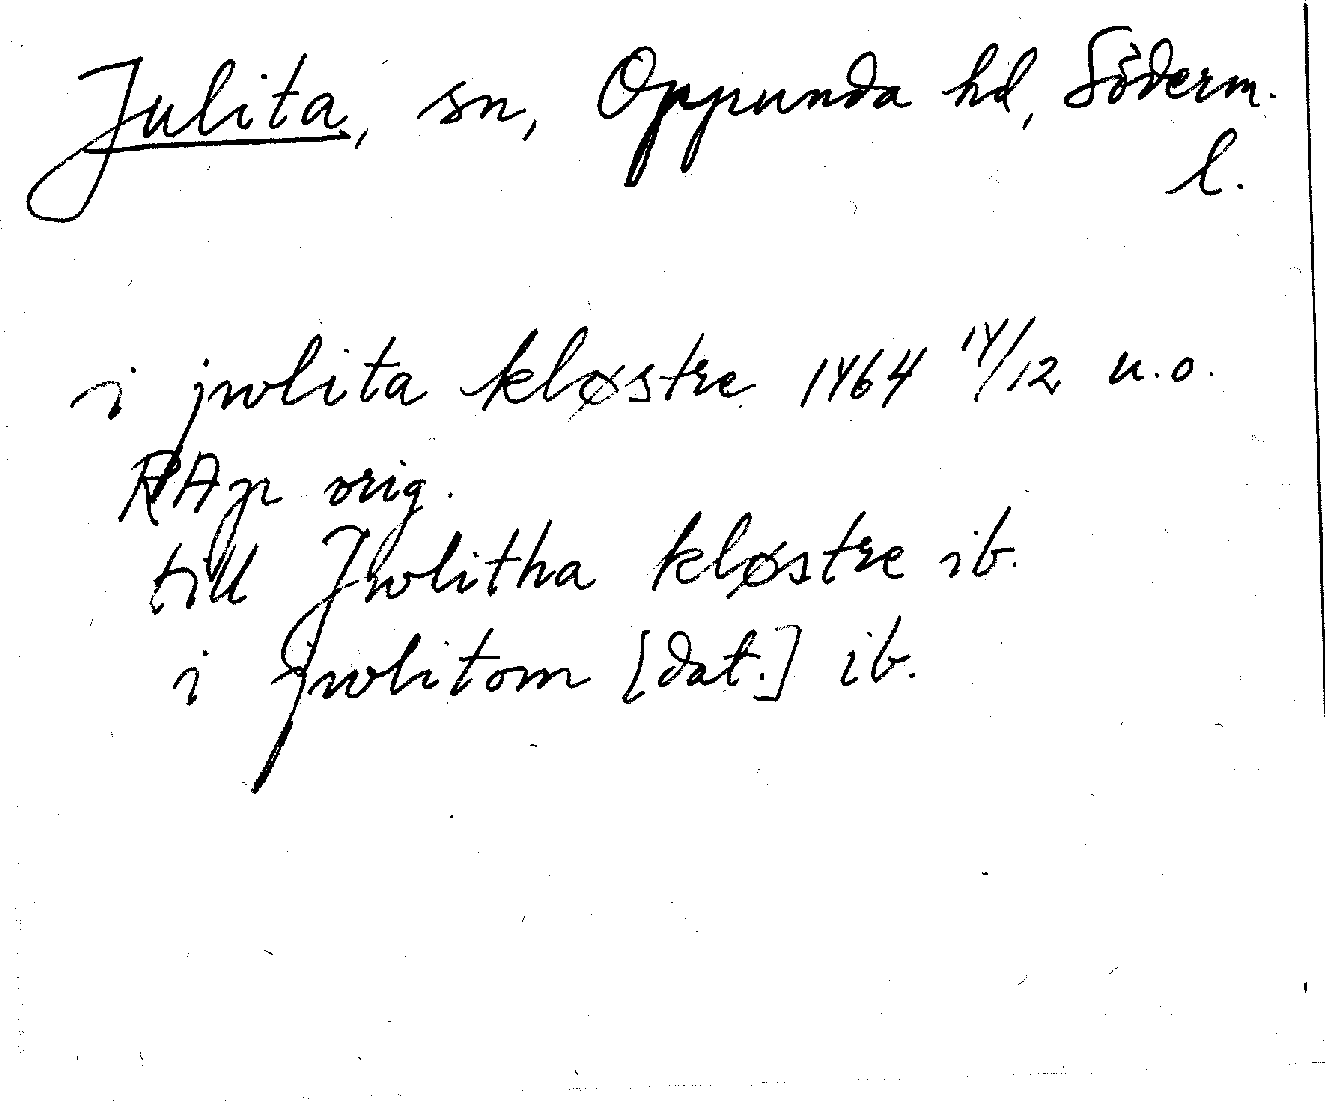 Julita, sn, Oppunda hd, Söderm.
l.
i jwlita kløstre 1464 14/12 u.o.
RAp orig.
till Jwlitha kløstre ib.
i jwlitom [dat.] ib.